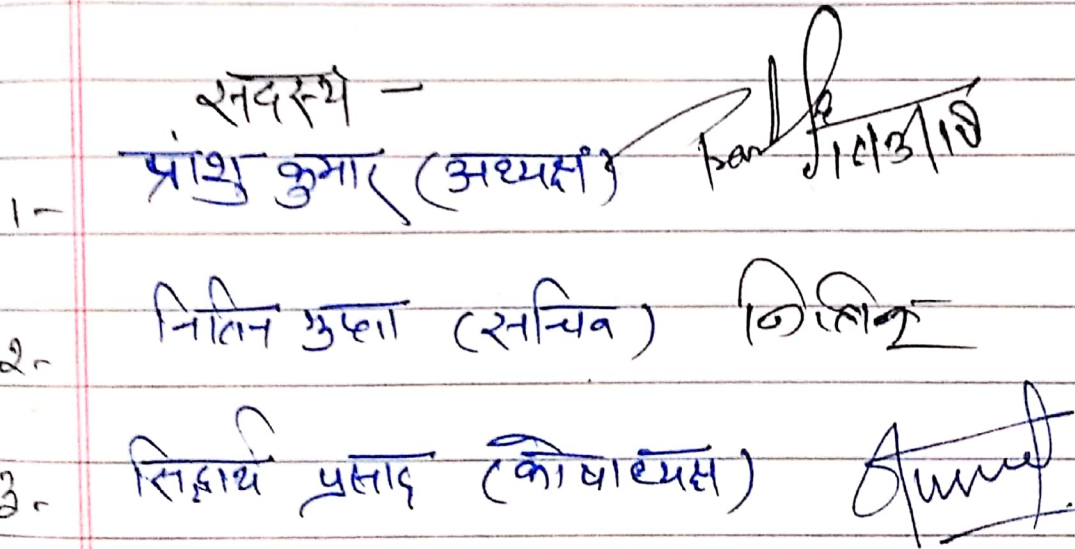 सदस्ये -
1- प्रांशु कुमार (अध्यक्ष)
2- नितिन गुप्ता (सचिव) नितिन
3- सिद्धार्थ प्रसाद (कोषाध्यक्ष)